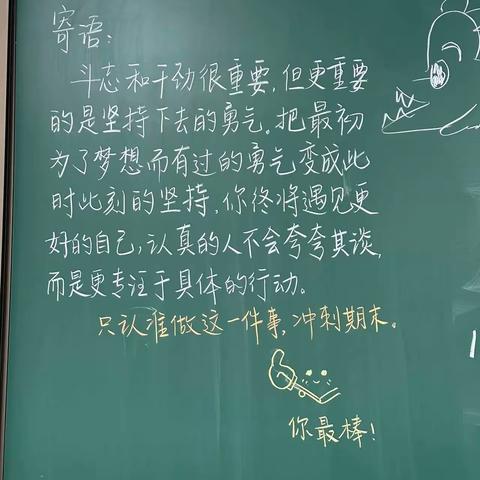 寄语:
斗志和干劲很重要,但更重要
的是坚持下去的勇气。把最初
为了梦想而有过的勇气变成此
时此刻的坚持,你终将遇见更
好的自己,认真的人不会夸夸其谈,
而是更专注于具体的行动。
只认准做这一件事,冲刺期末。
你最棒!